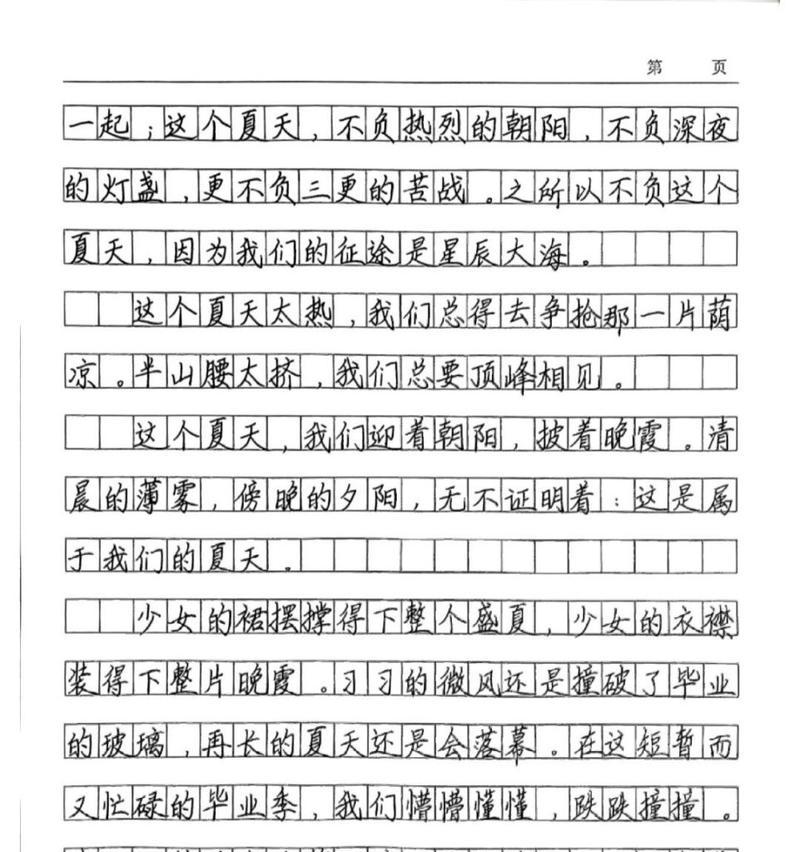 第 页
一起；这个夏天，不负热烈的朝阳，不负深夜
的灯盏，更不负三更的苦战。之所以不负这个
夏天，因为我们的征途是星辰大海。
这个夏天太热，我们总得去争抢那一片荫
凉。半山腰太挤，我们总要顶峰相见。
这个夏天，我们迎着朝阳，披着晚霞。清
晨的薄雾，傍晚的夕阳，无不证明着：这是属
于我们的夏天。
少女的裙摆撑得下整个盛夏，少女的衣襟
装得下整片晚霞。习习的微风还是撞破了毕业
的玻璃，再长的夏天还是会落幕。在这短暂而
又忙碌的毕业季，我们懵懵懂懂，跌跌撞撞。